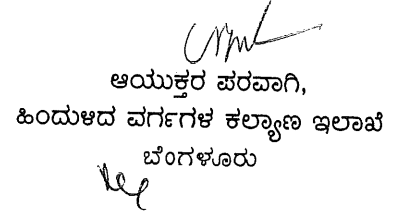 ಆಯುಕ್ತರ ಪರವಾಗಿ,
ಹಿಂದುಳಿದ ವರ್ಗಗಳ ಕಲ್ಯಾಣ ಇಲಾಖೆ
ಬೆಂಗಳೂರು